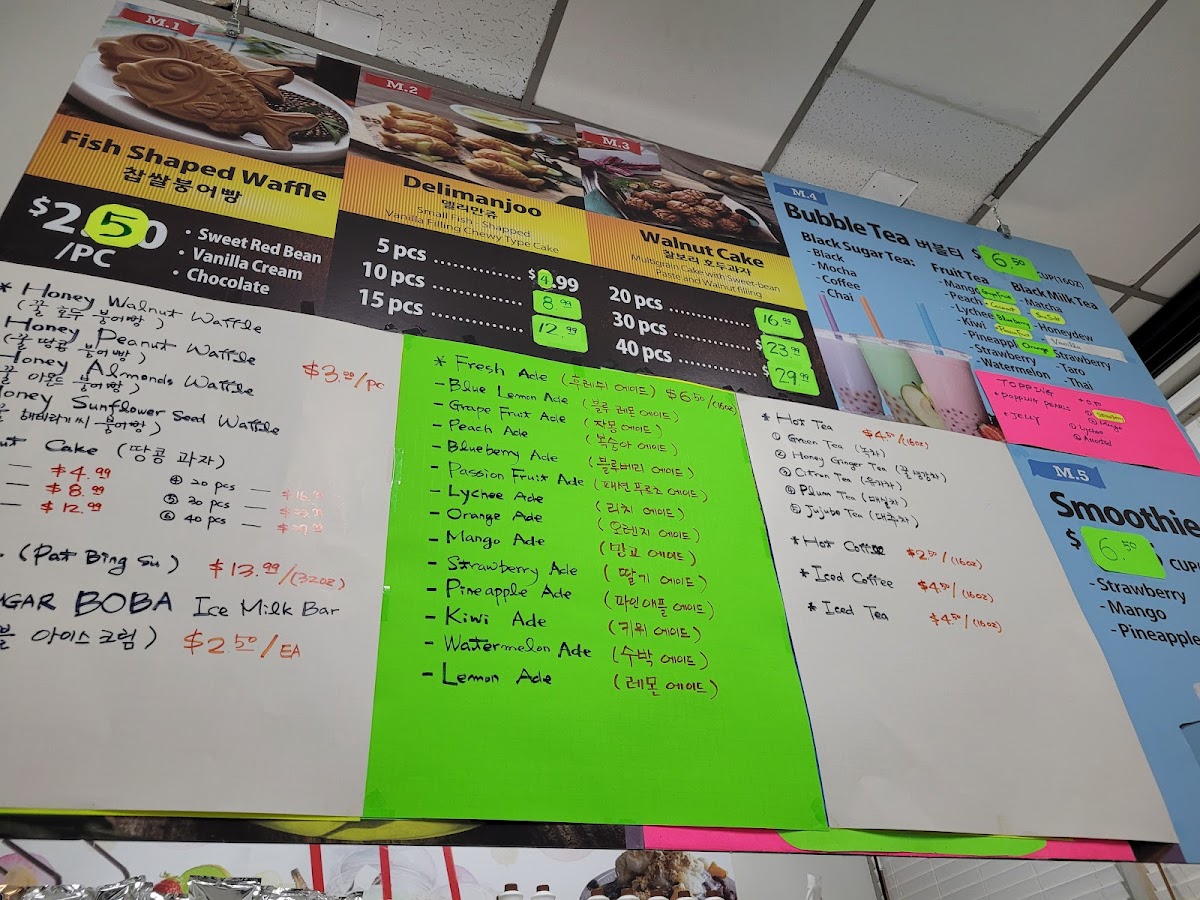 M.1
Fish Shaped Waffle
찹쌀붕어빵
$2.50
/PC
• Sweet Red Bean
• Vanilla Cream
• Chocolate
M.2
Delimanjoo
델리만쥬
Small Fish - Shapped
Vanilla Filling Chewy Type Cake
5 pcs ............... $4.99
10 pcs ............... 8.99
15 pcs ............... 12.99
M.3
Walnut Cake
찰보리 호두과자
Multigrain Cake with Sweet-bean
Paste and Walnut filling
20 pcs ............... 16.99
30 pcs ............... $23.99
40 pcs ............... $29.99
M.4
Bubble Tea 버블티 $6.50 CUP(16OZ)
Black Sugar Tea:
- Black
- Mocha
- Coffee
- Chai
Fruit Tea
- Mango
- Peach
- Lychee
- Kiwi
- Pineappl
- Strawberry
- Watermelon
Blueberry
Orange
Black Milk Tea
- Matcha
- Honeydew
Vanilla
- Strawberry
- Taro
- Thai
TOPPING
• POPPING PEARLS
• JELLY
① Strawberry
② Mango
① Lychee
② Assorted
M.5
Smoothie
$6.50 CUP
- Strawberry
- Mango
- Pineapple
* Honey Walnut Waffle
(꿀 호두 붕어빵)
Honey Peanut Waffle
(꿀 땅콩 붕어빵)
Honey Almonds Waffle
꿀 아몬드 붕어빵)
Honey Sunflower Seed Waffle
해바라기씨 붕어빵)
/PC
Cake (땅콩 과자)
— $4.99
— $8.99
— $12.99
④ 20 pcs —
⑤ 30 pcs —
⑥ 40 pcs —
(Pat Bing Su) $13.99/(32OZ)
BOBA Ice Milk Bar
아이스크림) $2.50/EA
* Fresh Ade (후레쉬 에이드) $6.50/(16oz)
- Blue Lemon Ade (블루 레몬 에이드)
- Grape Fruit Ade (자몽 에이드)
- Peach Ade (복숭아 에이드)
- Blueberry Ade (블루베리 에이드)
- Passion Fruit Ade (패션 푸르츠 에이드)
- Lychee Ade (리치 에이드)
- Orange Ade (오렌지 에이드)
- Mango Ade (망고 에이드)
- Strawberry Ade (딸기 에이드)
- Pineapple Ade (파인애플 에이드)
- Kiwi Ade (키위 에이드)
- Watermelon Ade (수박 에이드)
- Lemon Ade (레몬 에이드)
* Hot Tea $4.50/(16oz)
① Green Tea (녹차)
② Honey Ginger Tea (꿀 생강차)
③ Citron Tea (유자차)
④ Plum Tea (매실차)
⑤ Jujube Tea (대추차)
* Hot Coffee $2.50/(16oz)
* Iced Coffee $4.50/(16oz)
* Iced Tea $4.50/(16oz)